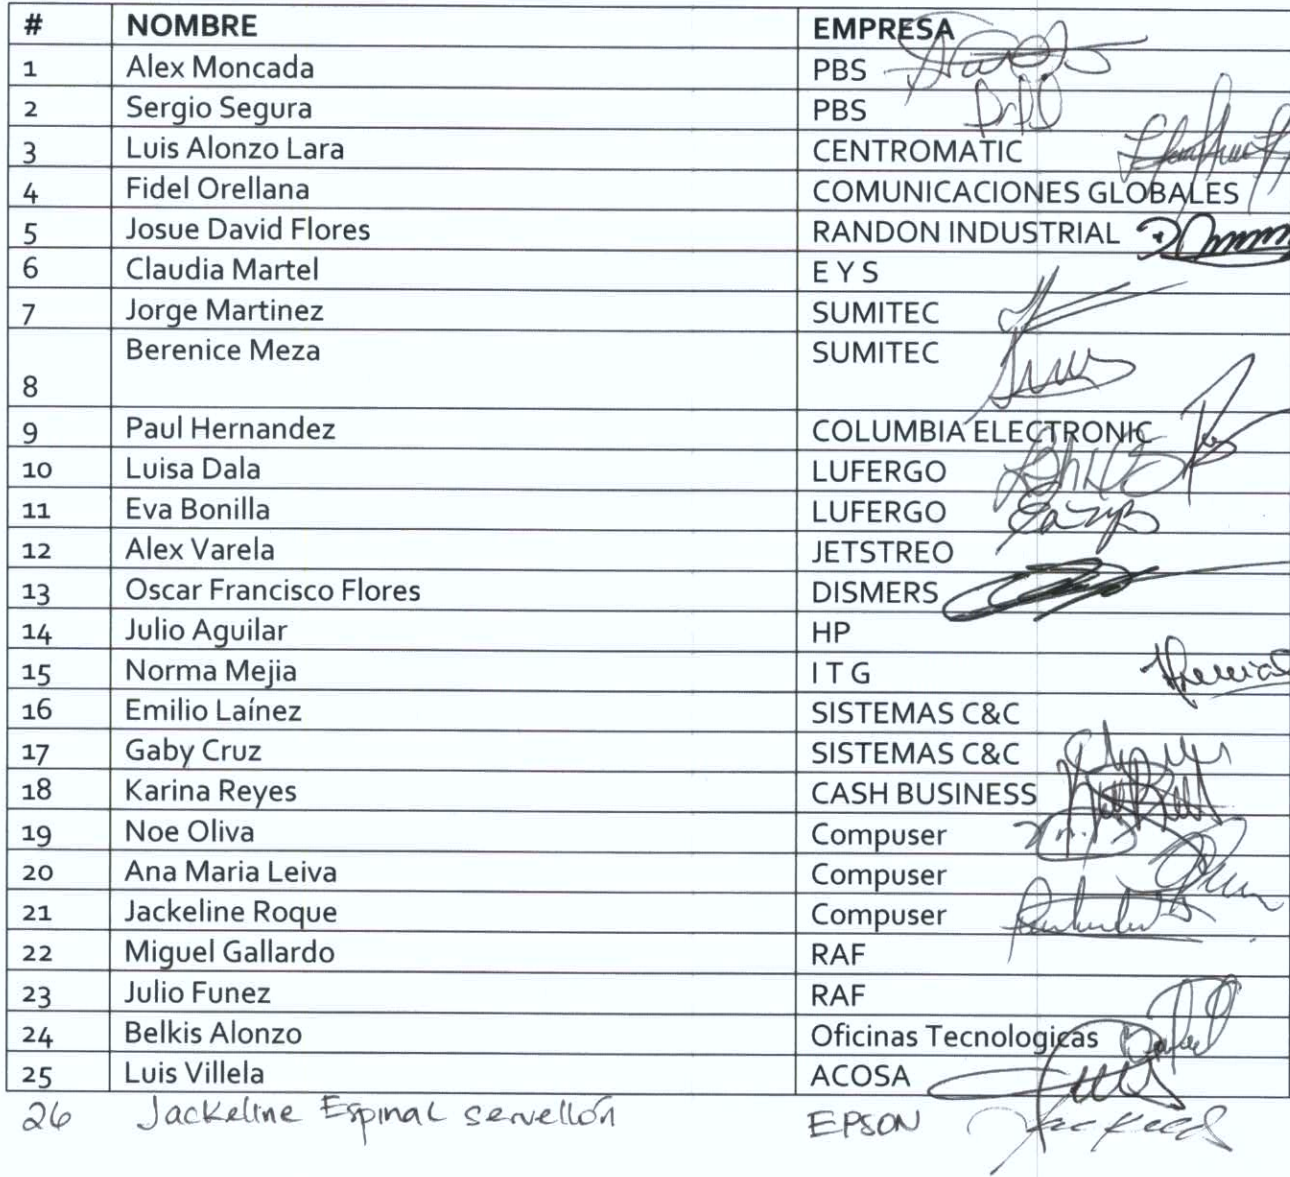 # NOMBRE EMPRESA
1 Alex Moncada PBS
2 Sergio Segura PBS
3 Luis Alonzo Lara CENTROMATIC
4 Fidel Orellana COMUNICACIONES GLOBALES
5 Josue David Flores RANDON INDUSTRIAL
6 Claudia Martel E Y S
7 Jorge Martinez SUMITEC
8 Berenice Meza SUMITEC
9 Paul Hernandez COLUMBIA ELECTRONIC
10 Luisa Dala LUFERGO
11 Eva Bonilla LUFERGO
12 Alex Varela JETSTREO
13 Oscar Francisco Flores DISMERS
14 Julio Aguilar HP
15 Norma Mejia I T G
16 Emilio Laínez SISTEMAS C&C
17 Gaby Cruz SISTEMAS C&C
18 Karina Reyes CASH BUSINESS
19 Noe Oliva Compuser
20 Ana Maria Leiva Compuser
21 Jackeline Roque Compuser
22 Miguel Gallardo RAF
23 Julio Funez RAF
24 Belkis Alonzo Oficinas Tecnologicas
25 Luis Villela ACOSA
26 Jackeline Espinal servellón EPSON